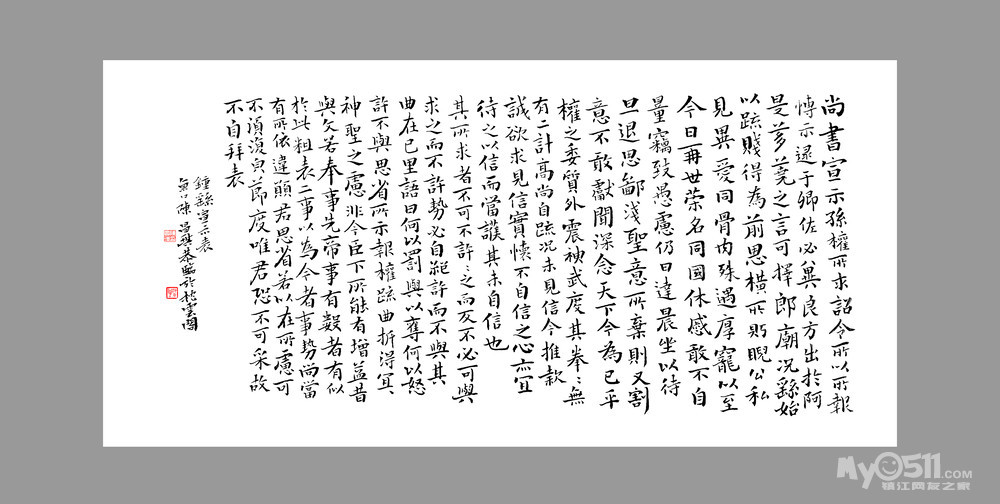 尚書宣示孫權所求詔令所以所報
博示逮于卿佐必冀良方出於阿
是芻蕘之言可擇郎廟況繇始
以疏賤得為前恩橫所盼睨公私
見異愛同骨肉殊遇厚寵以至
今日再世荣名同國休慼敢不自
量竊致愚慮仍日達晨坐以待
旦退思鄙淺聖意所棄則又割
意不敢獻聞深念天下今為已平
權之委質外震神武度其拳〻無
有二計高尚自疏況未見信今推款
誠欲求見信實懷不自信之心亦宜
待之以信而當護其未自信也
其所求者不可不許〻之而反不必可與
求之而不許勢必自絕許而不與其
曲在己里語曰何以罰與以奪何以怒
許不與思省所示報權疏曲折得宜〻
神聖之慮非今臣下所能有增益昔
與文若奉事先帝事有數者有似
於此粗表二事以為今者事勢尚當
有所依違願君思省若以在所慮可
不須復皃節度唯君恐不可采故
不自拜表
鍾繇宣示表